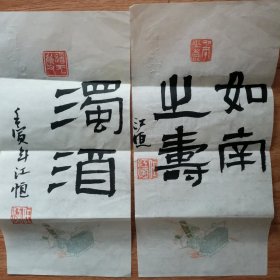 如南
之壽
江恒
濁酒
壬寅年江恒